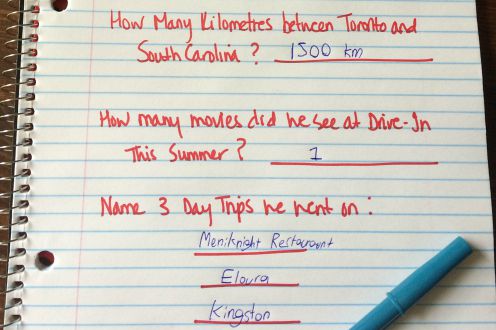 How Many Kilometres between Toronto and
South Carolina ? 1500 km
How many movies did he see at Drive-In
This Summer ? 1
Name 3 Day Trips he went on :
Restaurant
Elora
Kingston